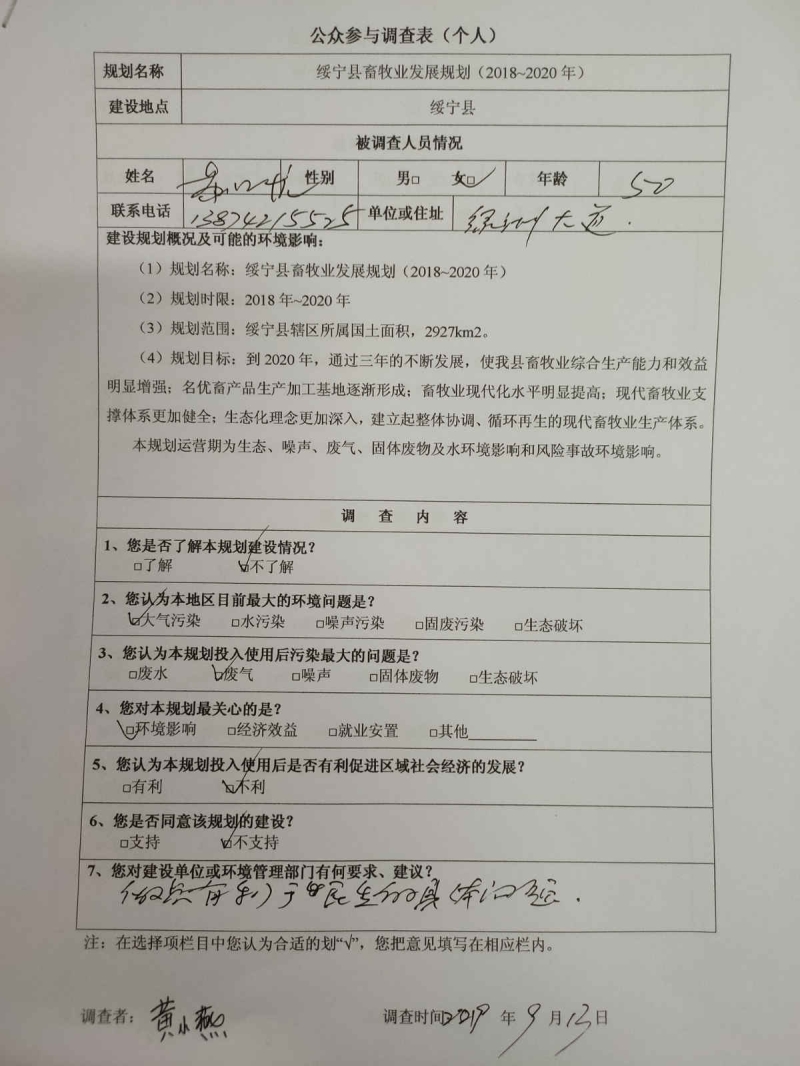 公众参与调查表（个人）
规划名称 绥宁县畜牧业发展规划（2018~2020 年）
建设地点 绥宁县
被调查人员情况
姓名 性别 男□ 女□√ 年龄 50
联系电话 13874215525 单位或住址 绿洲大道.
建设规划概况及可能的环境影响：
（1）规划名称：绥宁县畜牧业发展规划（2018~2020 年）
（2）规划时限：2018 年~2020 年
（3）规划范围：绥宁县辖区所属国土面积，2927km2。
（4）规划目标：到 2020 年，通过三年的不断发展，使我县畜牧业综合生产能力和效益
明显增强；名优畜产品生产加工基地逐渐形成；畜牧业现代化水平明显提高；现代畜牧业支
撑体系更加健全；生态化理念更加深入，建立起整体协调、循环再生的现代畜牧业生产体系。
本规划运营期为生态、噪声、废气、固体废物及水环境影响和风险事故环境影响。
调 查 内 容
1、您是否了解本规划建设情况？
□了解 ☑不了解
2、您认为本地区目前最大的环境问题是？
☑大气污染 □水污染 □噪声污染 □固废污染 □生态破坏
3、您认为本规划投入使用后污染最大的问题是？
□废水 ☑废气 □噪声 □固体废物 □生态破坏
4、您对本规划最关心的是？
☑环境影响 □经济效益 □就业安置 □其他
5、您认为本规划投入使用后是否有利促进区域社会经济的发展？
□有利 ☑不利
6、您是否同意该规划的建设？
□支持 ☑不支持
7、您对建设单位或环境管理部门有何要求、建议？
做些有利于民生的具体
注：在选择项栏目中您认为合适的划“√”，您把意见填写在相应栏内。
调查者：黄小燕 调查时间2019 年 9 月 13 日